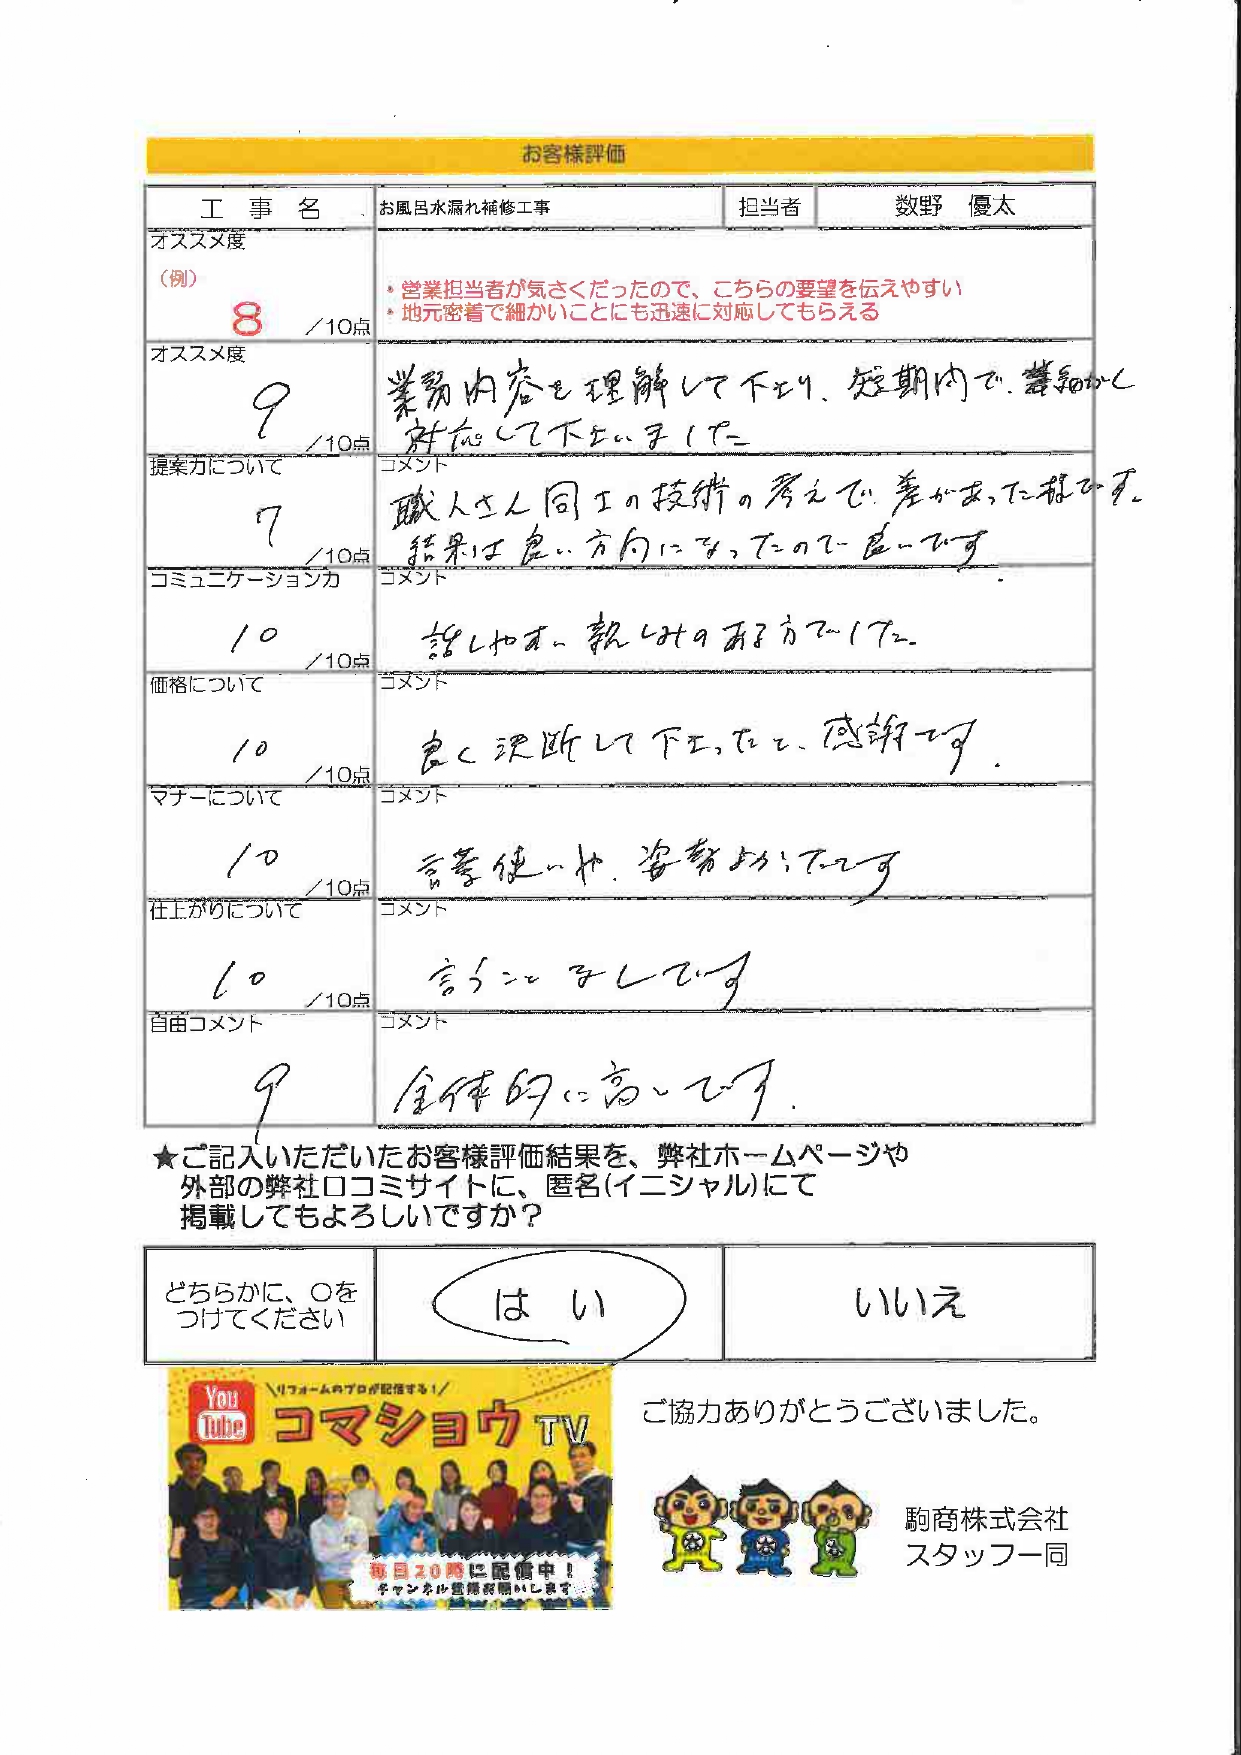 お客様評価
工事名 お風呂水漏れ補修工事 担当者 数野 優太
オススメ度
（例）
8 /10点
・営業担当者が気さくだったので、こちらの要望を伝えやすい
・地元密着で細かいことにも迅速に対応してもらえる
オススメ度
9 /10点
業務内容を理解して下さり、短期内で、細かく
対応して下さいました
提案力について
7 /10点
コメント
職人さん同士の技術の考えで、差があった様です。
結果は良い方向になったので良いです
コミュニケーション力
10 /10点
コメント
話しやすい親しみのある方でした。
価格について
10 /10点
コメント
良く決断して下さったと、感謝です.
マナーについて
10 /10点
コメント
言葉使いや、姿勢よかったです
仕上がりについて
10 /10点
コメント
言うことなしです
自由コメント
9
コメント
全体的に高いです.
★ご記入いただいたお客様評価結果を、弊社ホームページや
外部の弊社口コミサイトに、匿名(イニシャル)にて
掲載してもよろしいですか？
どちらかに、〇を
つけてください
はい
いいえ
You Tube
＼リフォームのプロが配信する！／
コマショウTV
毎日20時に配信中！
チャンネル登録お願いします
ご協力ありがとうございました。
駒商株式会社
スタッフ一同